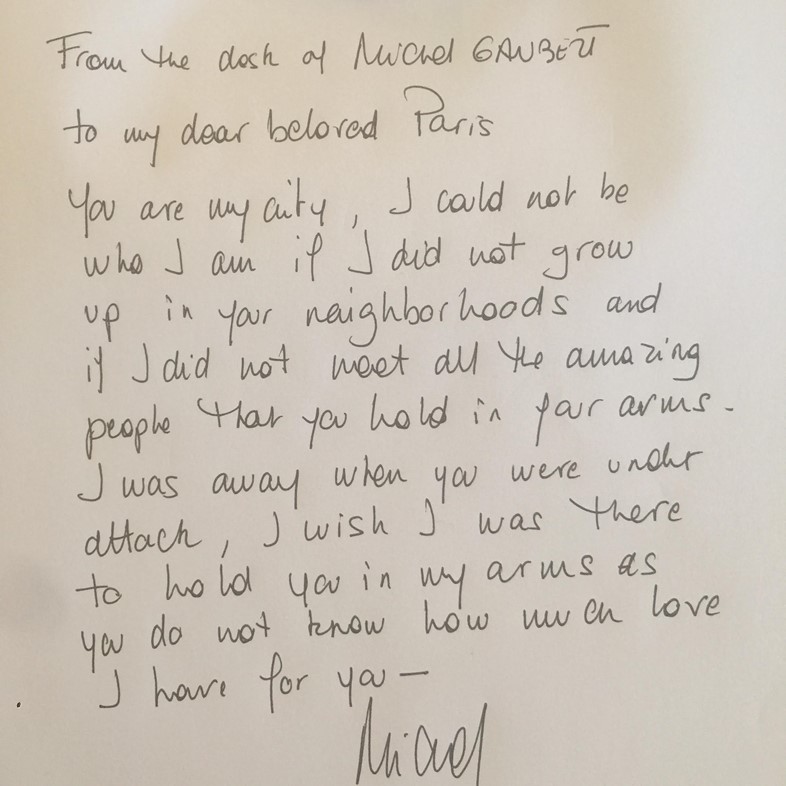 From the desk of Michel GAUBERT
to my dear beloved Paris
You are my city, I could not be
who I am if I did not grow
up in your neighborhoods and
if I did not meet all the amazing
people that you hold in your arms.
I was away when you were under
attack, I wish I was there
to hold you in my arms as
you do not know how much love
I have for you —
Michel